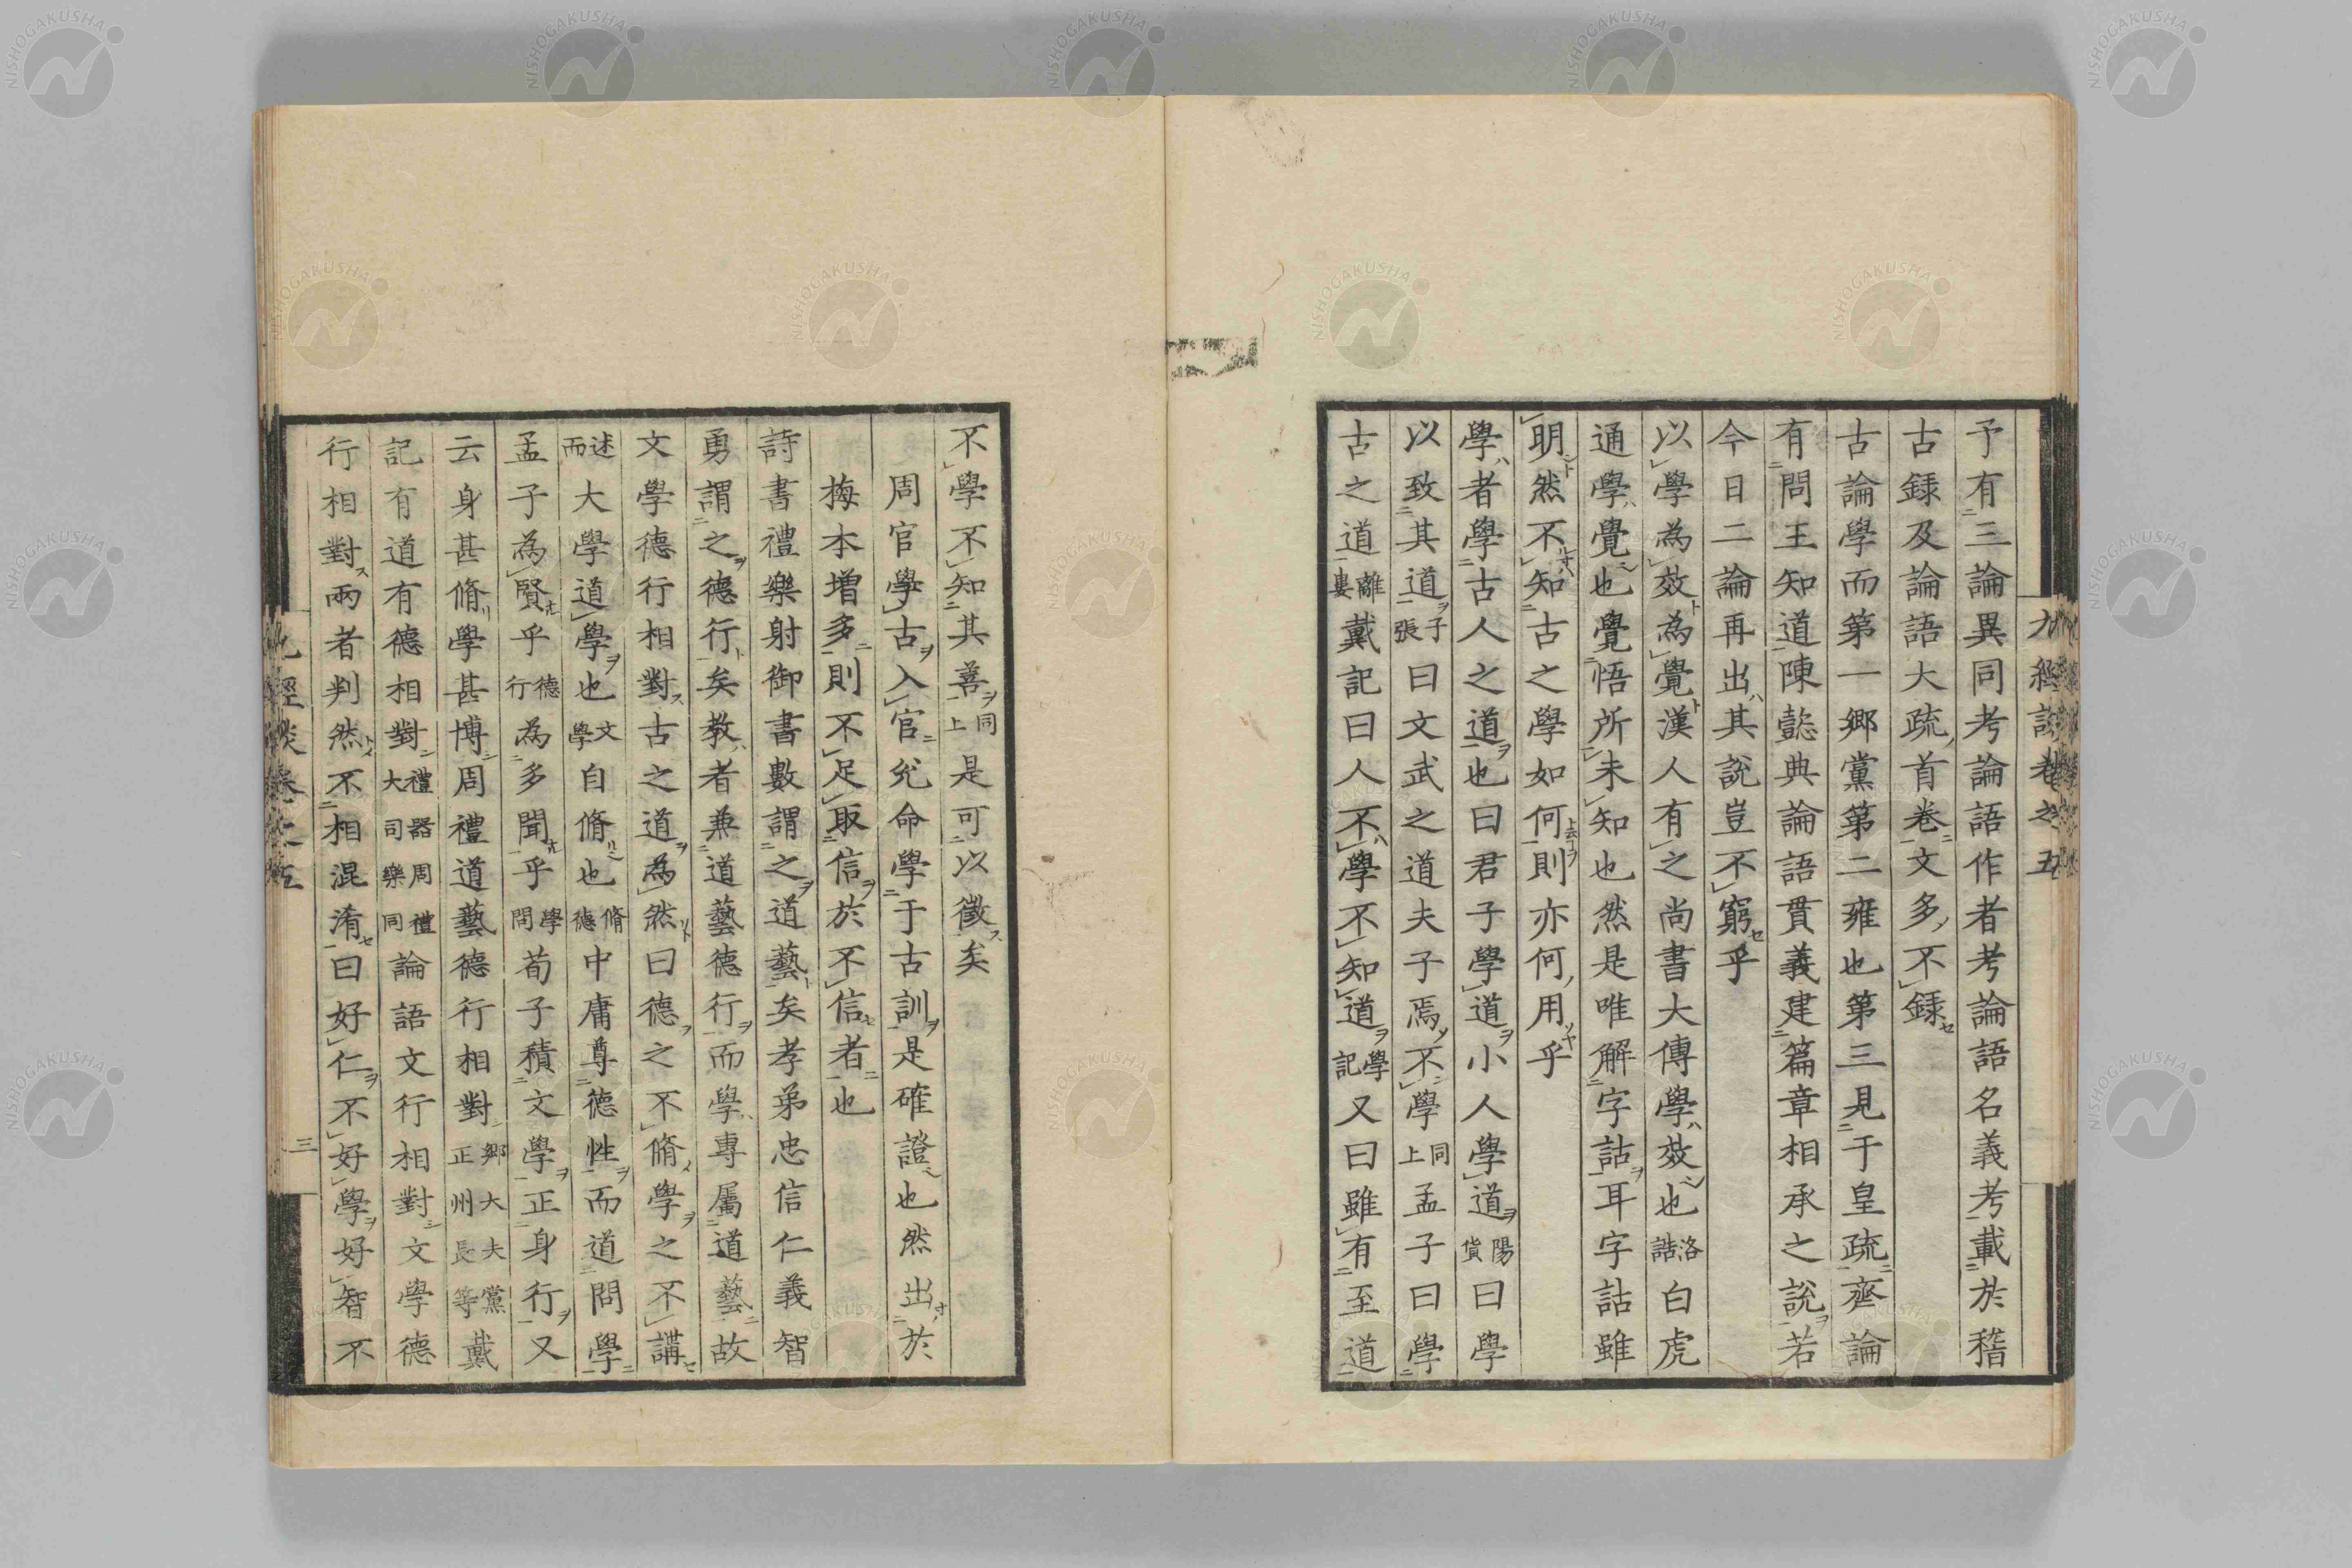 予有三論異同考論語作者考論語名義考載於稽
古録及論語大疏首卷文多不録
古論學而第一郷黨第二雍也第三見于皇疏齊論
有問王知道陳懿典論語貫義建篇章相承之説若
今日二論再出其説豈不窮乎
以學為效為覺漢人有之尚書大傳學效也洛誥白虎
通學覺也覺悟所未知也然是唯解字詁耳字詁雖
明然不知古之學如何則亦何用乎
學者學古人之道也曰君子學道小人學道陽貨曰學
以致其道子張曰文武之道夫子焉不學同上孟子曰學
古之道離婁戴記曰人不學不知道學記又曰雖有至道
不學不知其善同上是可以徵矣
周官學古入官兊命學于古訓是確證也然出於
梅本増多則不足取信於不信者也
詩書禮樂射御書數謂之道藝矣孝弟忠信仁義智
勇謂之德行矣教者兼道藝德行而學專屬道藝故
文學德行相對古之道為然曰德之不脩學之不講
述而大學道學也文學自脩也脩德中庸尊德性而道問學
孟子為賢乎德行為多聞乎學問荀子積文學正身行又
云身甚脩學甚博周禮道藝德行相對郷大夫黨正州長等戴
記有道有德相對禮器周禮大司樂同論語文行相對文學德
行相對兩者判然不相混淆曰好仁不好學好智不
三
NISHOGAKUSHA